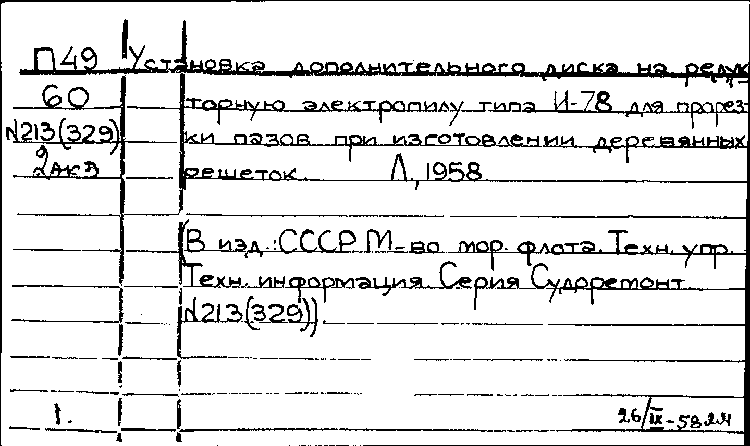 П49 Установка дополнительного диска на редук
60 торную электропилу типа И-78 для прорез
N213(329) ки пазов при изготовлении деревянных
2акз решеток. Л., 1958
(В изд.: СССР М-во мор. флота. Техн. упр.
Техн. информация. Серия Судоремонт
N213(329)).
1. 26/IX-58